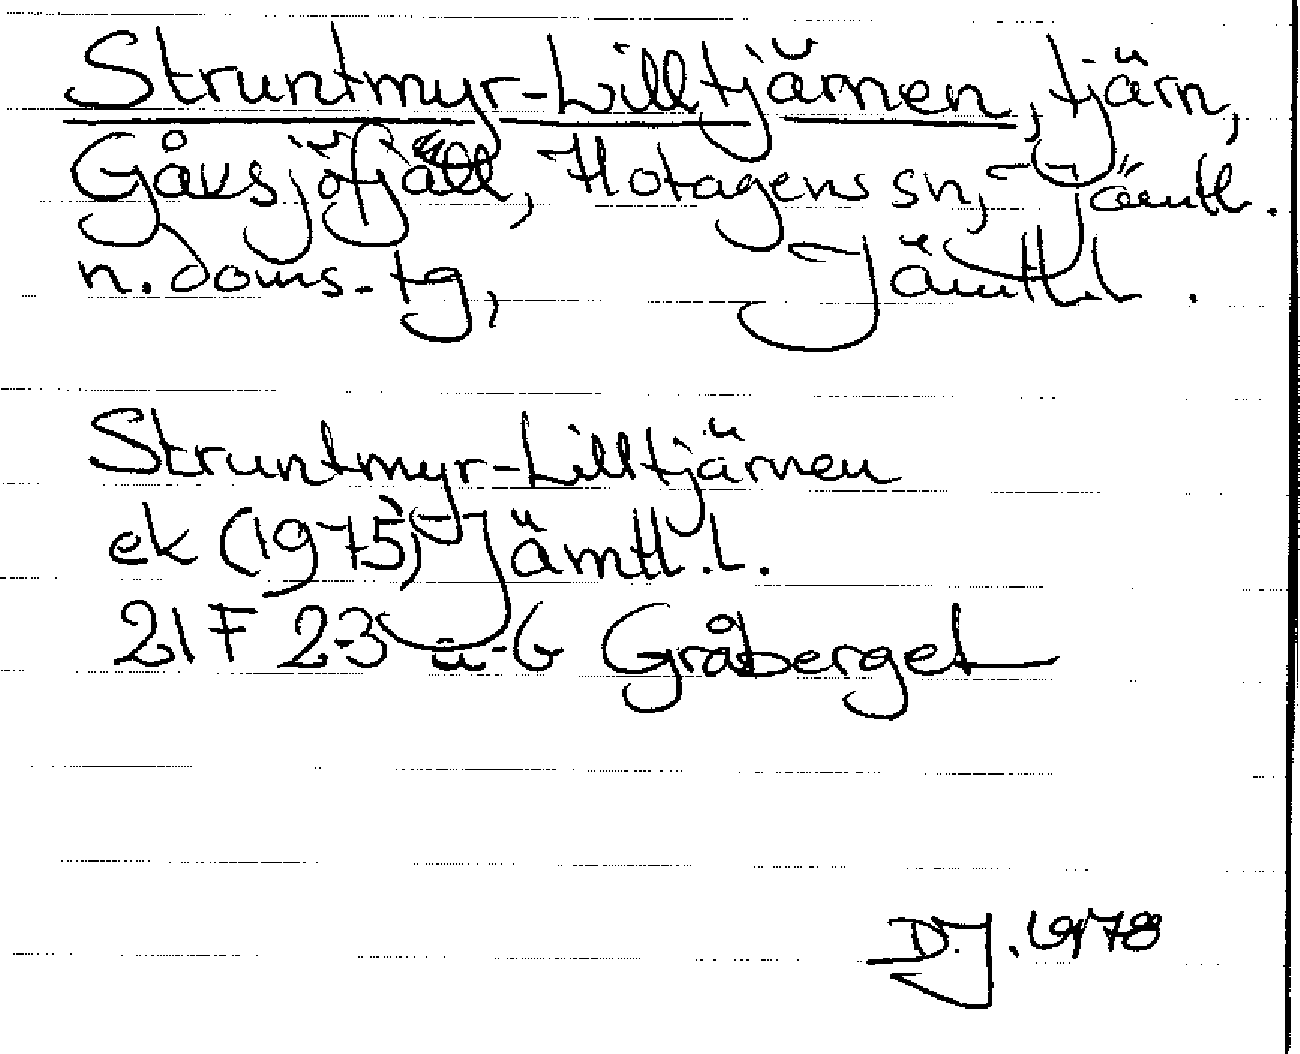 Struntmyr-Lilltjärnen, tjärn,
Gåxsjöfjäll, Hotagens sn, Jämtl.
n. doms.-tg, Jämtl.l.
Struntmyr-Lilltjärnen
ek (1975) Jämtl.l.
21F 2-3 a-b Gråberget
D.J. 1978